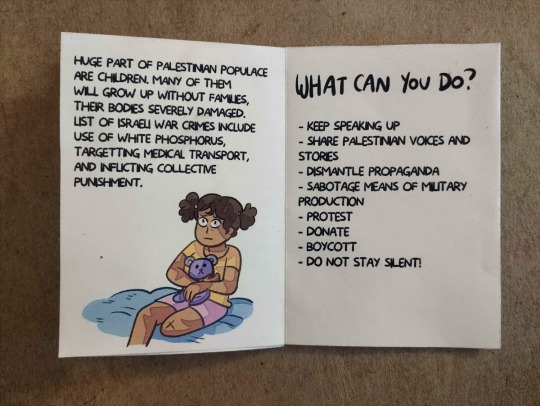 HUGE PART OF PALESTINIAN POPULACE
ARE CHILDREN. MANY OF THEM
WILL GROW UP WITHOUT FAMILIES,
THEIR BODIES SEVERELY DAMAGED.
LIST OF ISRAELI WAR CRIMES INCLUDE
USE OF WHITE PHOSPHORUS,
TARGETTING MEDICAL TRANSPORT,
AND INFLICTING COLLECTIVE
PUNISHMENT.
WHAT CAN YOU DO?
- KEEP SPEAKING UP
- SHARE PALESTINIAN VOICES AND
STORIES
- DISMANTLE PROPAGANDA
- SABOTAGE MEANS OF MILITARY
PRODUCTION
- PROTEST
- DONATE
- BOYCOTT
- DO NOT STAY SILENT!